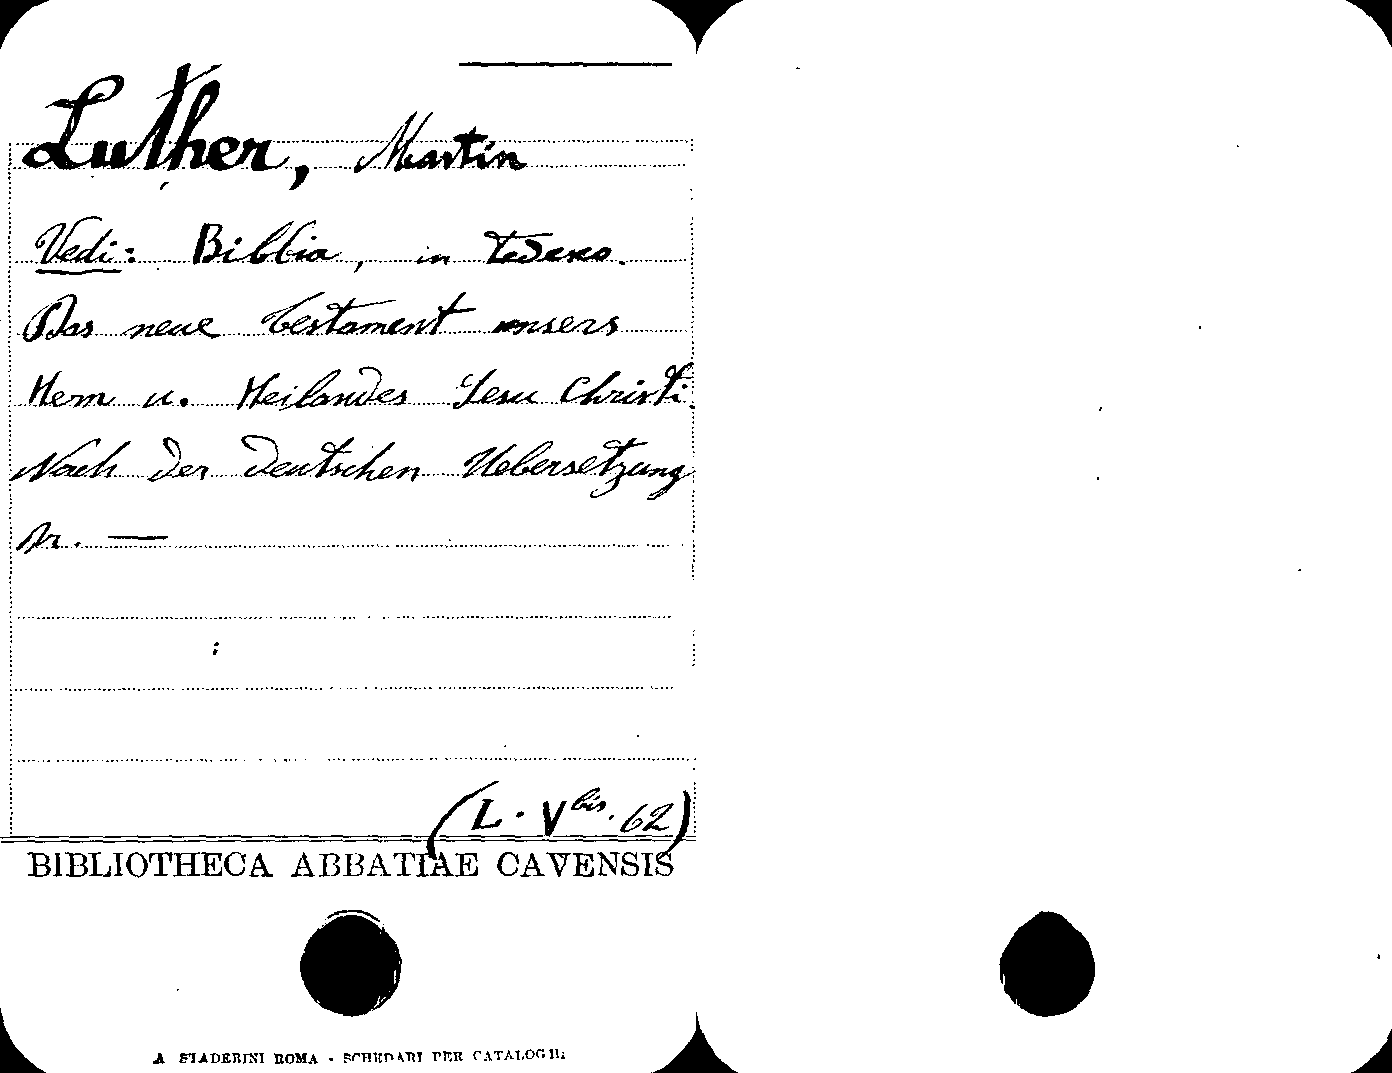 Luther, Martin
Vedi: Bibbia, in tedesco.
Das neue Testament unsers
Herrn u. Heilandes Jesu Christi.
Nach der deutschen Uebersetzung
v. —
(L. V bis. 62)
BIBLIOTHECA ABBATIAE CAVENSIS
A STADERINI ROMA - SCHEDARI PER CATALOGHI